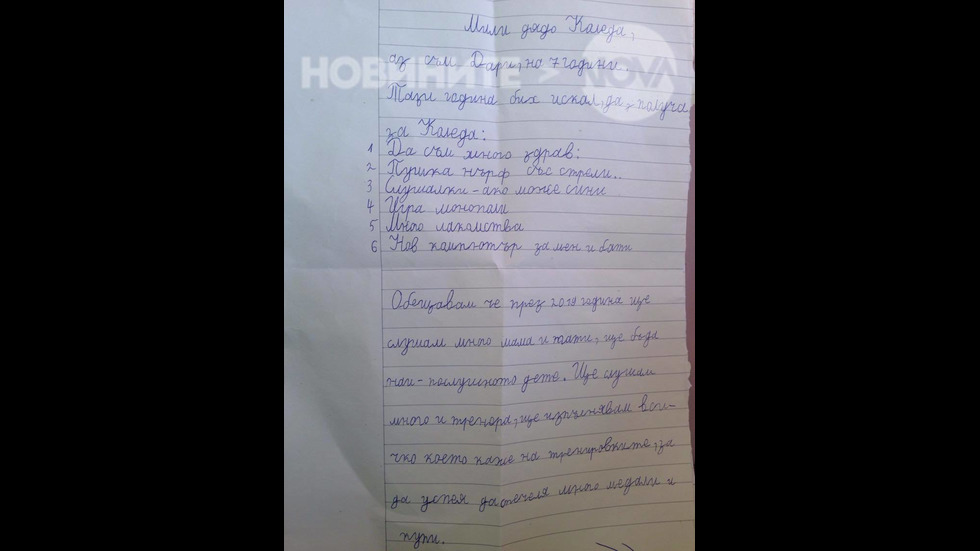 Мили дядо Коледа,
аз съм Дари, на 7 години.
НОВИНИТЕ > NOVA
Тази година бих искал да получа
за Коледа:
1 Да съм много здрав:
2 Пушка нърф със стрели..
3 Слушалки - ако може сини
4 Игра монопали
5 Много лакомства
6 Нов компютър за мен и бати
Обещавам че през 2019 година ще
слушам много мама и тати, ще бъда
най-послушното дете. Ще слушам
много и тренора, ще изпълнявам вси-
чко което каже на тренировките, за
да успея да спечеля много медали и
купи.